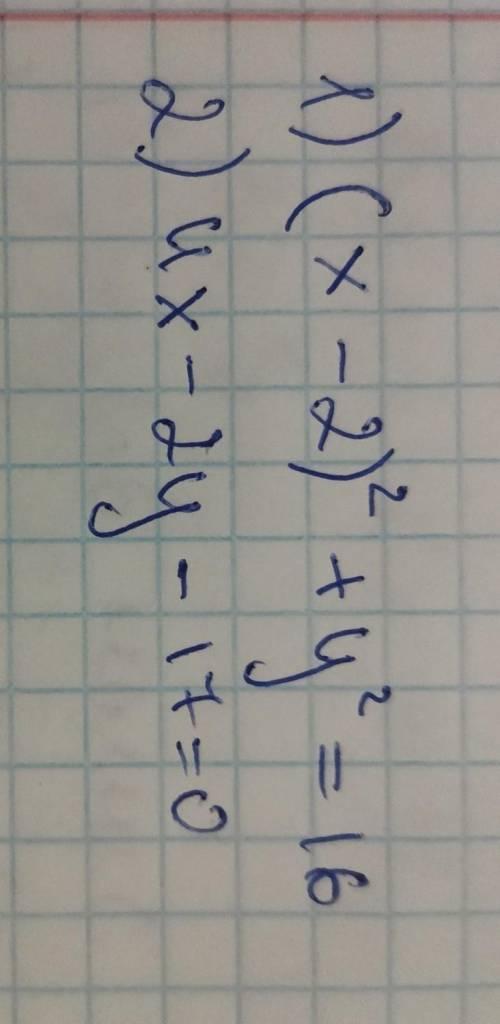 1) (x - 2)² + y² = 16
2) 4x - 2y - 17 = 0